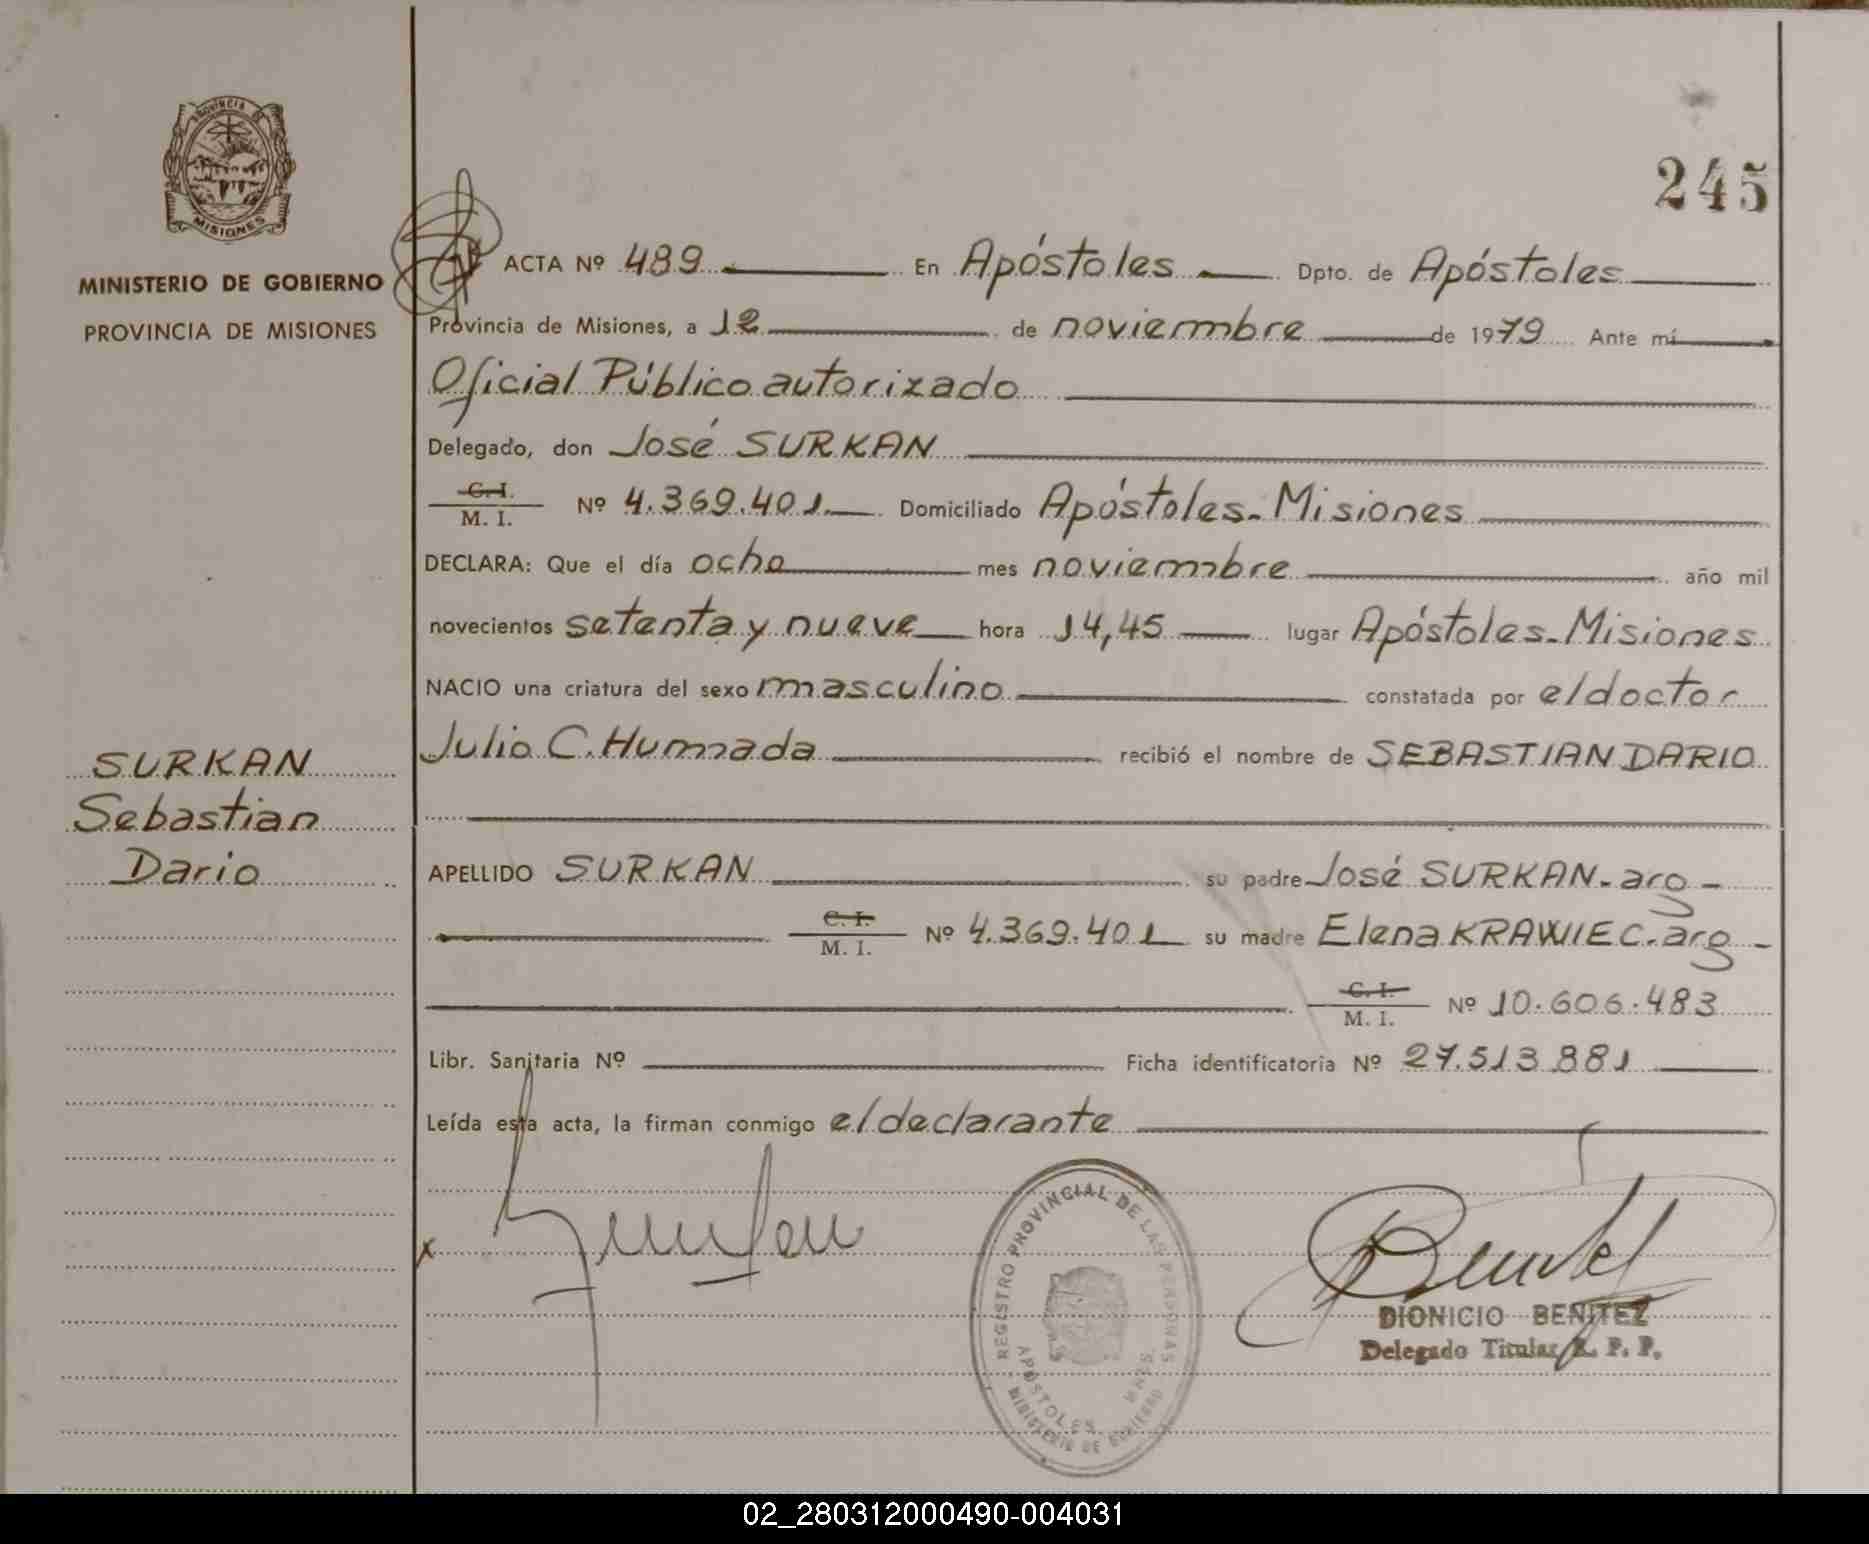 PROVINCIA DE
MISIONES
MINISTERIO DE GOBIERNO
PROVINCIA DE MISIONES
SURKAN
Sebastian
Dario
245
ACTA Nº 489 En Apóstoles Dpto. de Apóstoles
Provincia de Misiones, a 12 de noviembre de 1979 Ante mí
Oficial Público autorizado
Delegado, don José SURKAN
C. I.
M. I. Nº 4.369.401 Domiciliado Apóstoles-Misiones
DECLARA: Que el día ocho mes noviembre año mil
novecientos setenta y nueve hora 14,45 lugar Apóstoles-Misiones
NACIO una criatura del sexo masculino constatada por el doctor
Julio C. Humada recibió el nombre de SEBASTIAN DARIO
APELLIDO SURKAN su padre José SURKAN-arg-
C. I.
M. I. Nº 4.369.401 su madre Elena KRAWIEC-arg-
C. I.
M. I. Nº 10.606.483
Libr. Sanitaria Nº Ficha identificatoria Nº 27.513.881
Leída esta acta, la firman conmigo el declarante
x
REGISTRO PROVINCIAL DE LAS PERSONAS
APÓSTOLES MNES.
MINISTERIO DE GOBIERNO
DIONICIO BENITEZ
Delegado Titular R. P. P.
02_280312000490-004031